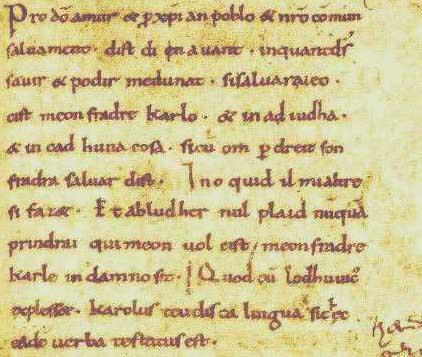 Pro dõ amur & p xp̃ian poblo & nr̃o cõmun
saluament . dist di en auant . inquantds̃
sauir & podir medunat . sisaluaraieo .
cist meon fradre Karlo . & in ad iudha .
& in cad huna cosa . sicũ om p dreit son
fradra saluar dist . Ino quid il mi altre
si faz& . Et ab ludher nul plaid nũquã
prindrai qui meon uol cist meon fradre
Karle in damno sit . Quod cũ lodhuuic̃
explesset . Karolus teudisca lingua sic ec
eade uerba testatus est .